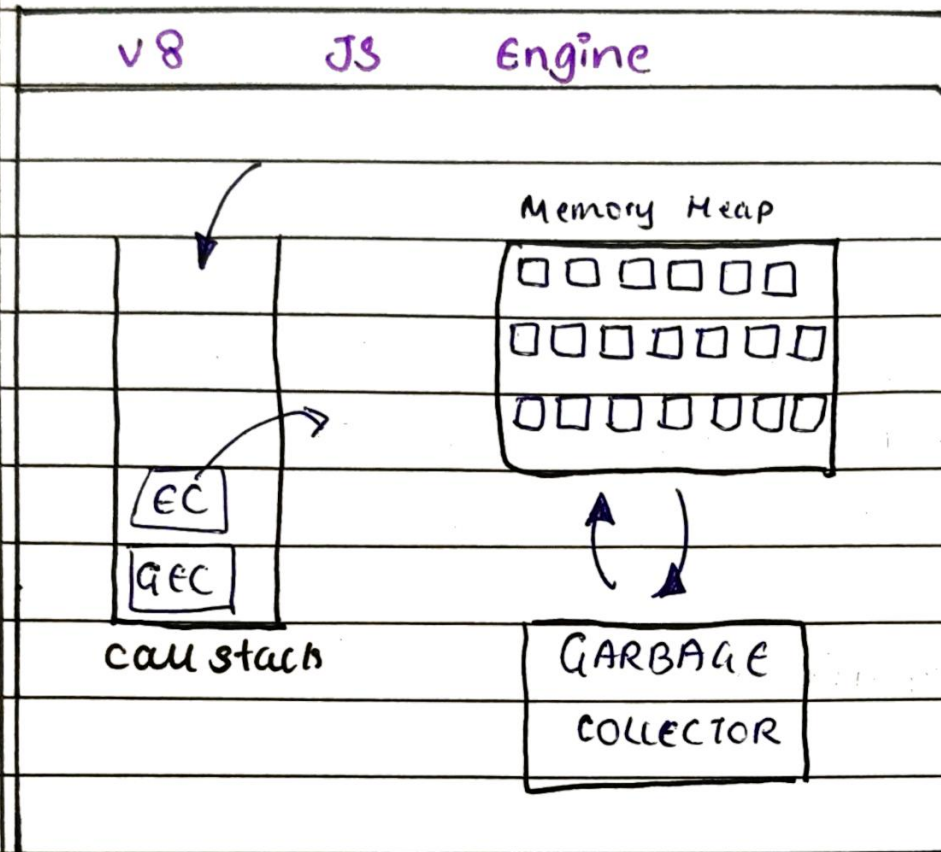 V8 JS Engine
Memory Heap
EC
GEC
call stack
GARBAGE
COLLECTOR